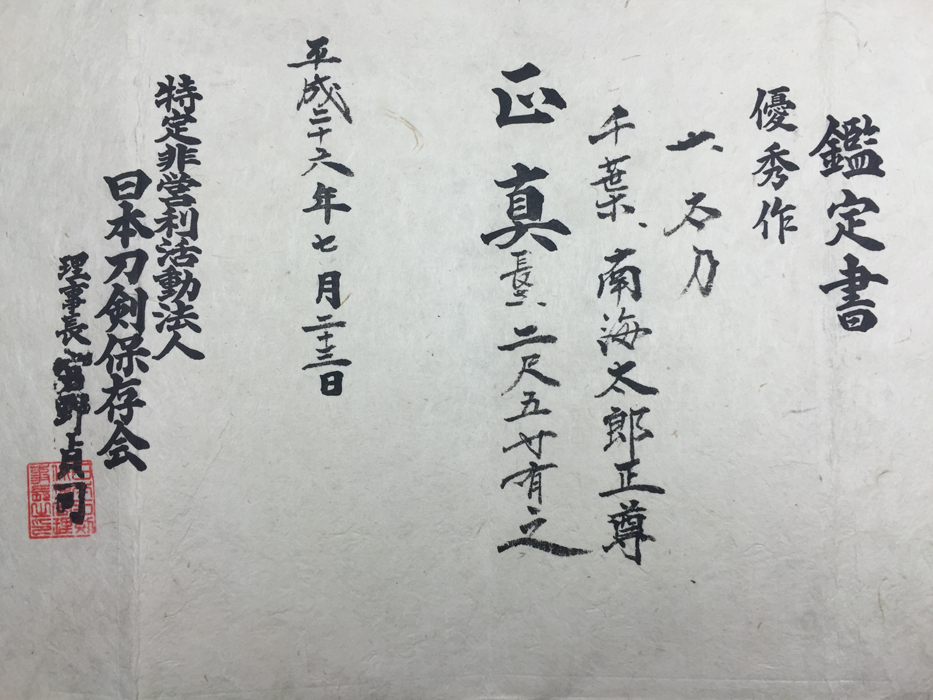 鑑定書
優秀作
一、太刀
千葉、南海太郎正尊
正真
長さ、二尺五寸有之
平成二十六年七月二十三日
特定非営利活動法人
日本刀剣保存会
理事長 冨野貞司